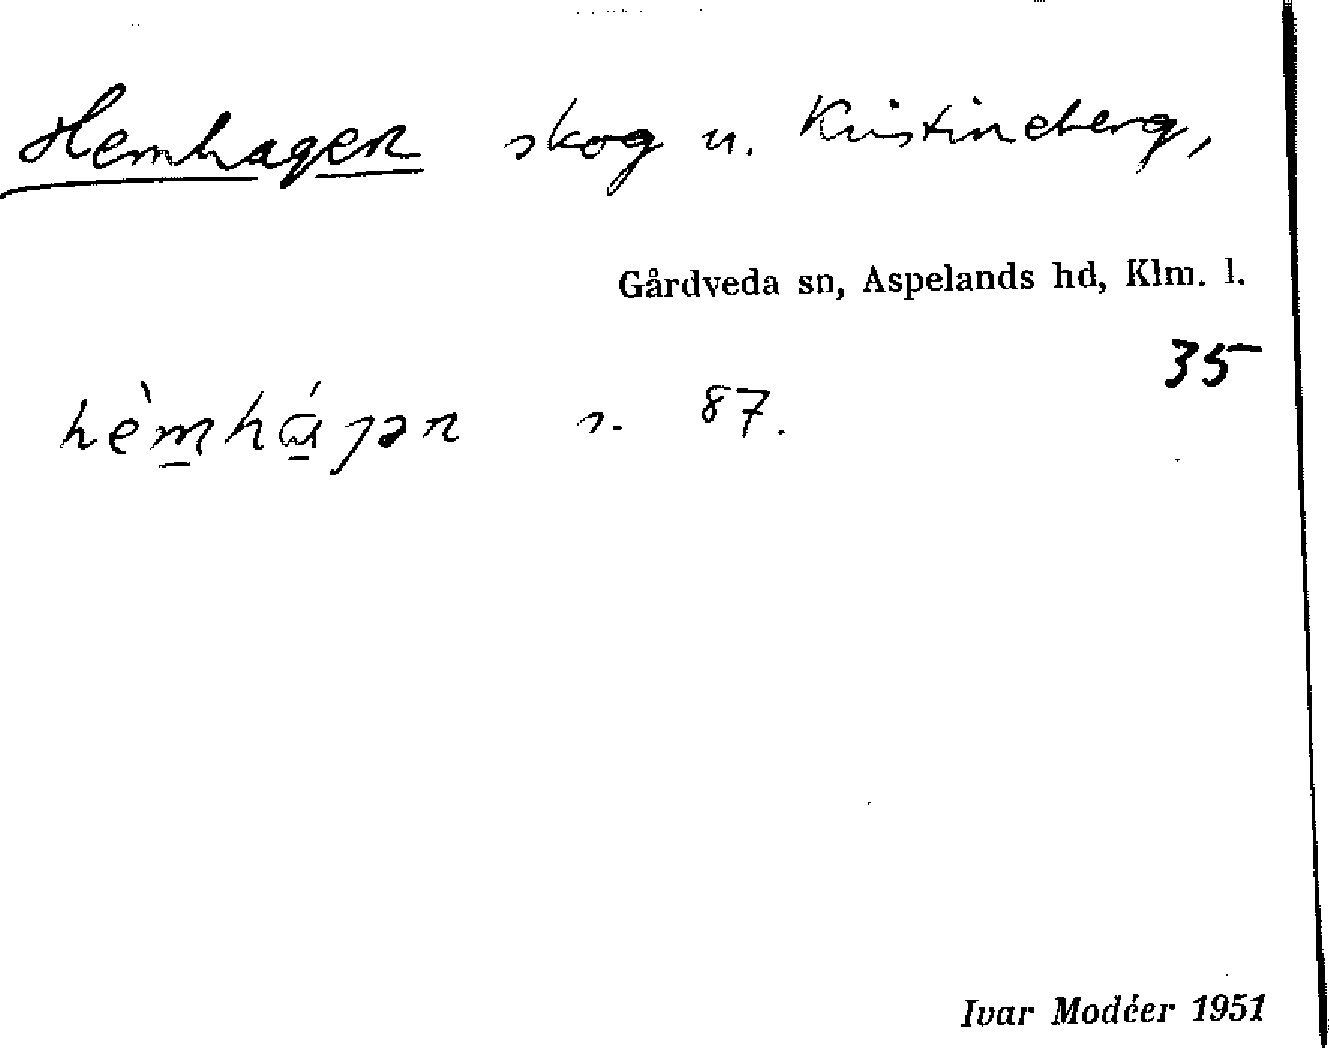 Hemhagen skog u. Kristineberg,
Gårdveda sn, Aspelands hd, Klm. l.
35
hèm̲hɑ̲́ɡən s. 87.
Ivar Modéer 1951